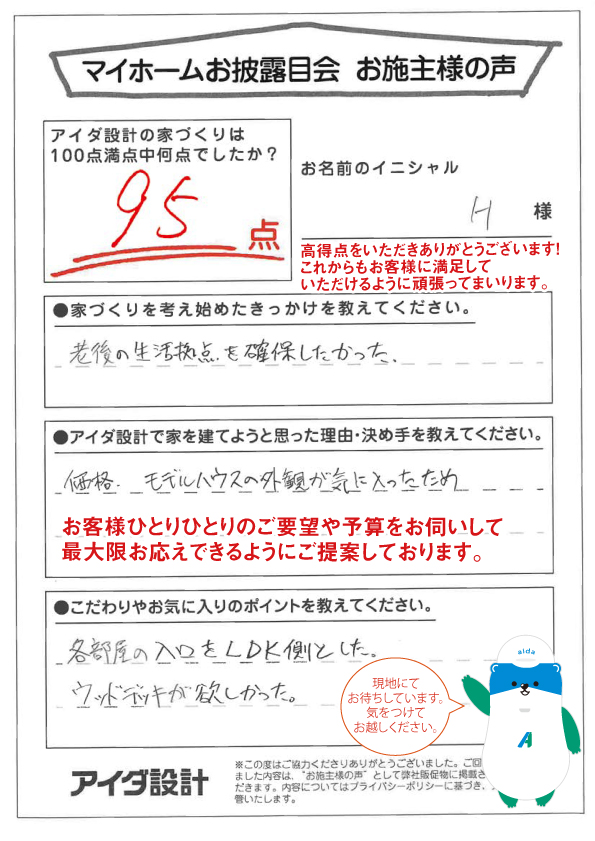 マイホームお披露目会 お施主様の声
アイダ設計の家づくりは
100点満点中何点でしたか？
95点
お名前のイニシャル
H 様
高得点をいただきありがとうございます!
これからもお客様に満足して
いただけるように頑張ってまいります。
●家づくりを考え始めたきっかけを教えてください。
老後の生活拠点を確保したかった、
●アイダ設計で家を建てようと思った理由・決め手を教えてください。
価格. モデルハウスの外観が気に入ったため
お客様ひとりひとりのご要望や予算をお伺いして
最大限お応えできるようにご提案しております。
●こだわりやお気に入りのポイントを教えてください。
各部屋の入口をLDK側とした。
ウッドデッキが欲しかった。
現地にて
お待ちしています。
気をつけて
お越しください。
aida
A
アイダ設計
※この度はご協力くださりありがとうございました。ご回
ました内容は、"お施主様の声"として弊社販促物に掲載さ
だきます。内容についてはプライバシーポリシーに基づき、
管いたします。